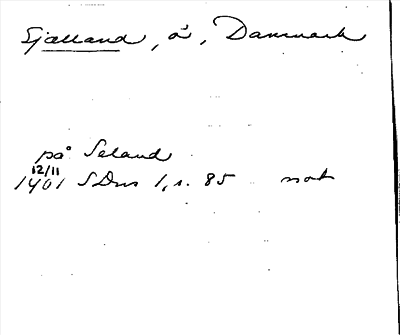 Sjælland, ö, Danmark
på Seland
12/11
1401 SDns 1, s. 85 not